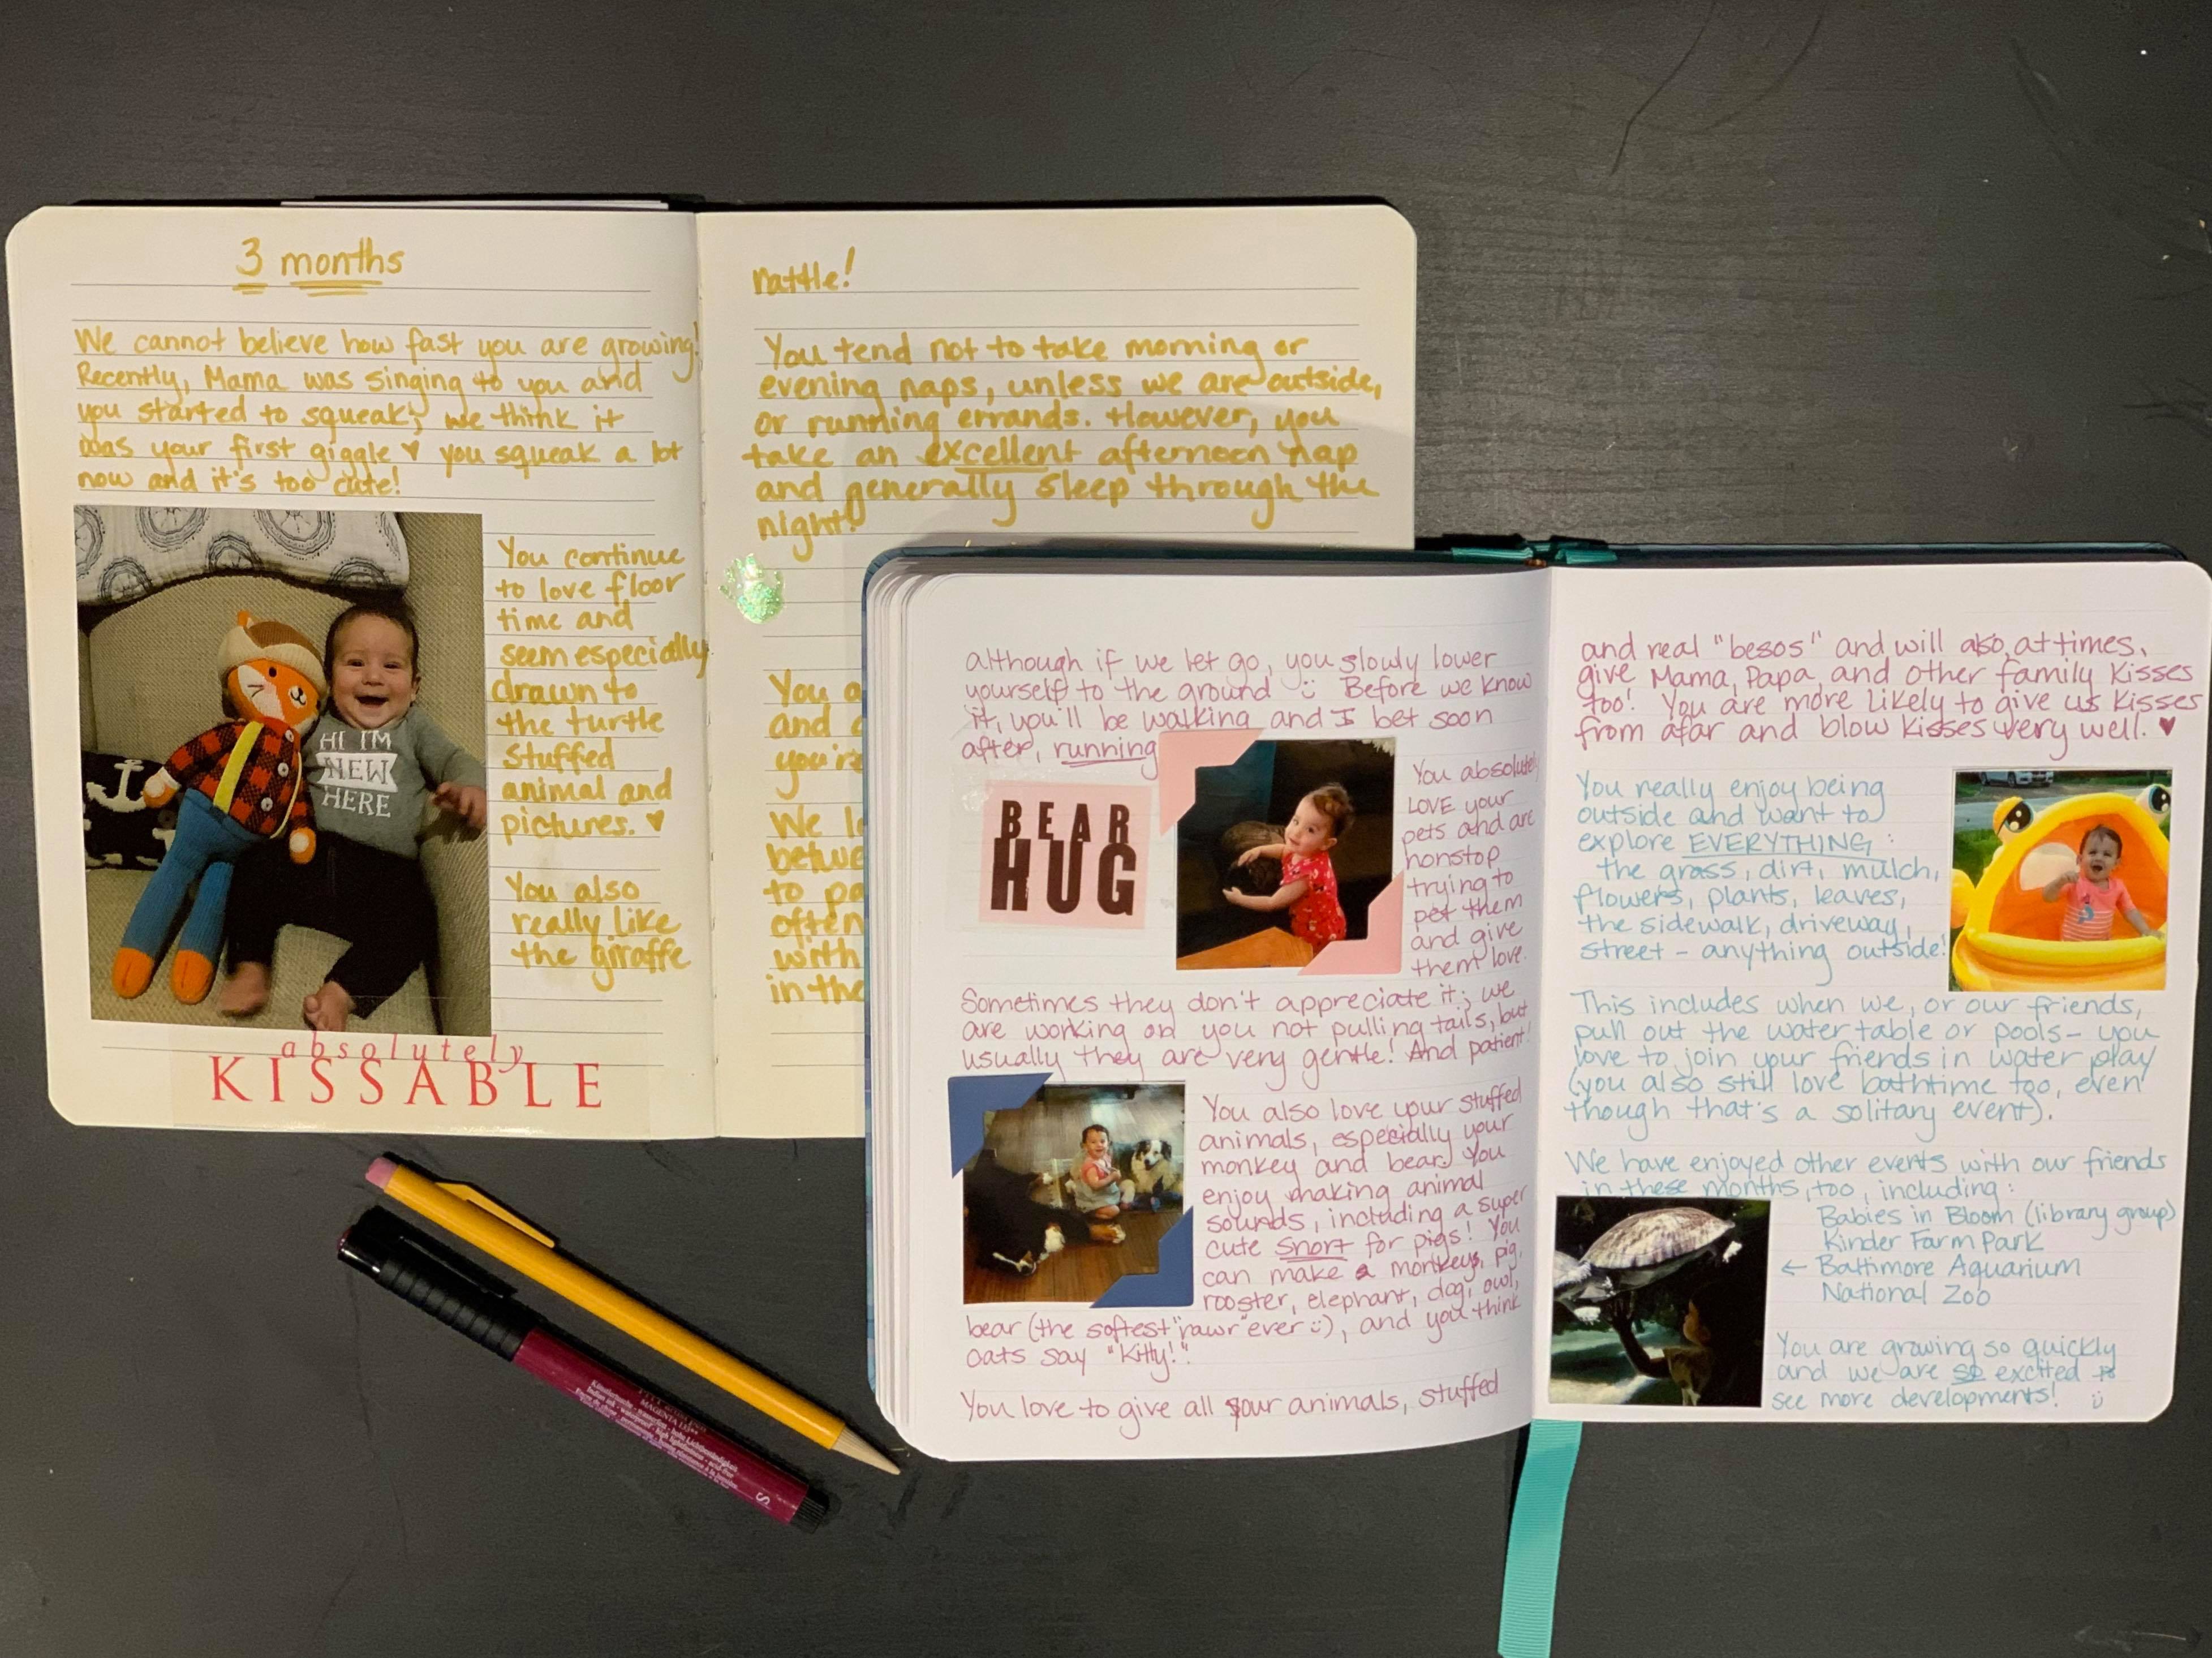 3 months
We cannot believe how fast you are growing!
Recently, Mama was singing to you and
you started to squeak; we think it
was your first giggle ♥ you squeak a lot
now and it's too cute!
You continue
to love floor
time and
seem especially
drawn to
the turtle
stuffed
animal and
pictures. ♥
You also
really like
the giraffe
HI I'M
NEW
HERE
absolutely
KISSABLE
rattle!
You tend not to take morning or
evening naps, unless we are outside,
or running errands. However, you
take an excellent afternoon nap
and generally sleep through the
night!
You a
and
you're
We l
betwe
to pa
often
with
in the
although if we let go, you slowly lower
yourself to the ground :) Before we know
it, you'll be walking and I bet soon
after, running
BEAR
HUG
You absolutely
LOVE your
pets and are
nonstop
trying to
pet them
and give
them love.
Sometimes they don't appreciate it; we
are working on you not pulling tails, but
usually they are very gentle! And patient!
You also love your stuffed
animals, especially your
monkey and bear. You
enjoy making animal
sounds, including a super
cute snort for pigs! You
can make a monkey, pig,
rooster, elephant, dog, owl,
bear (the softest "rawr" ever :)), and you think
cats say "Kitty!".
You love to give all your animals, stuffed
and real "besos" and will also, at times,
give Mama, Papa, and other family kisses
too! You are more likely to give us kisses
from afar and blow kisses very well. ♥
You really enjoy being
outside and want to
explore EVERYTHING:
the grass, dirt, mulch,
flowers, plants, leaves,
the sidewalk, driveway,
street - anything outside!
This includes when we, or our friends,
pull out the water table or pools - you
love to join your friends in water play
(you also still love bathtime too, even
though that's a solitary event).
We have enjoyed other events with our friends
in these months, too, including:
Babies in Bloom (library group)
Kinder Farm Park
← Baltimore Aquarium
National Zoo
You are growing so quickly
and we are so excited to
see more developments! :)
MAGENTA
S